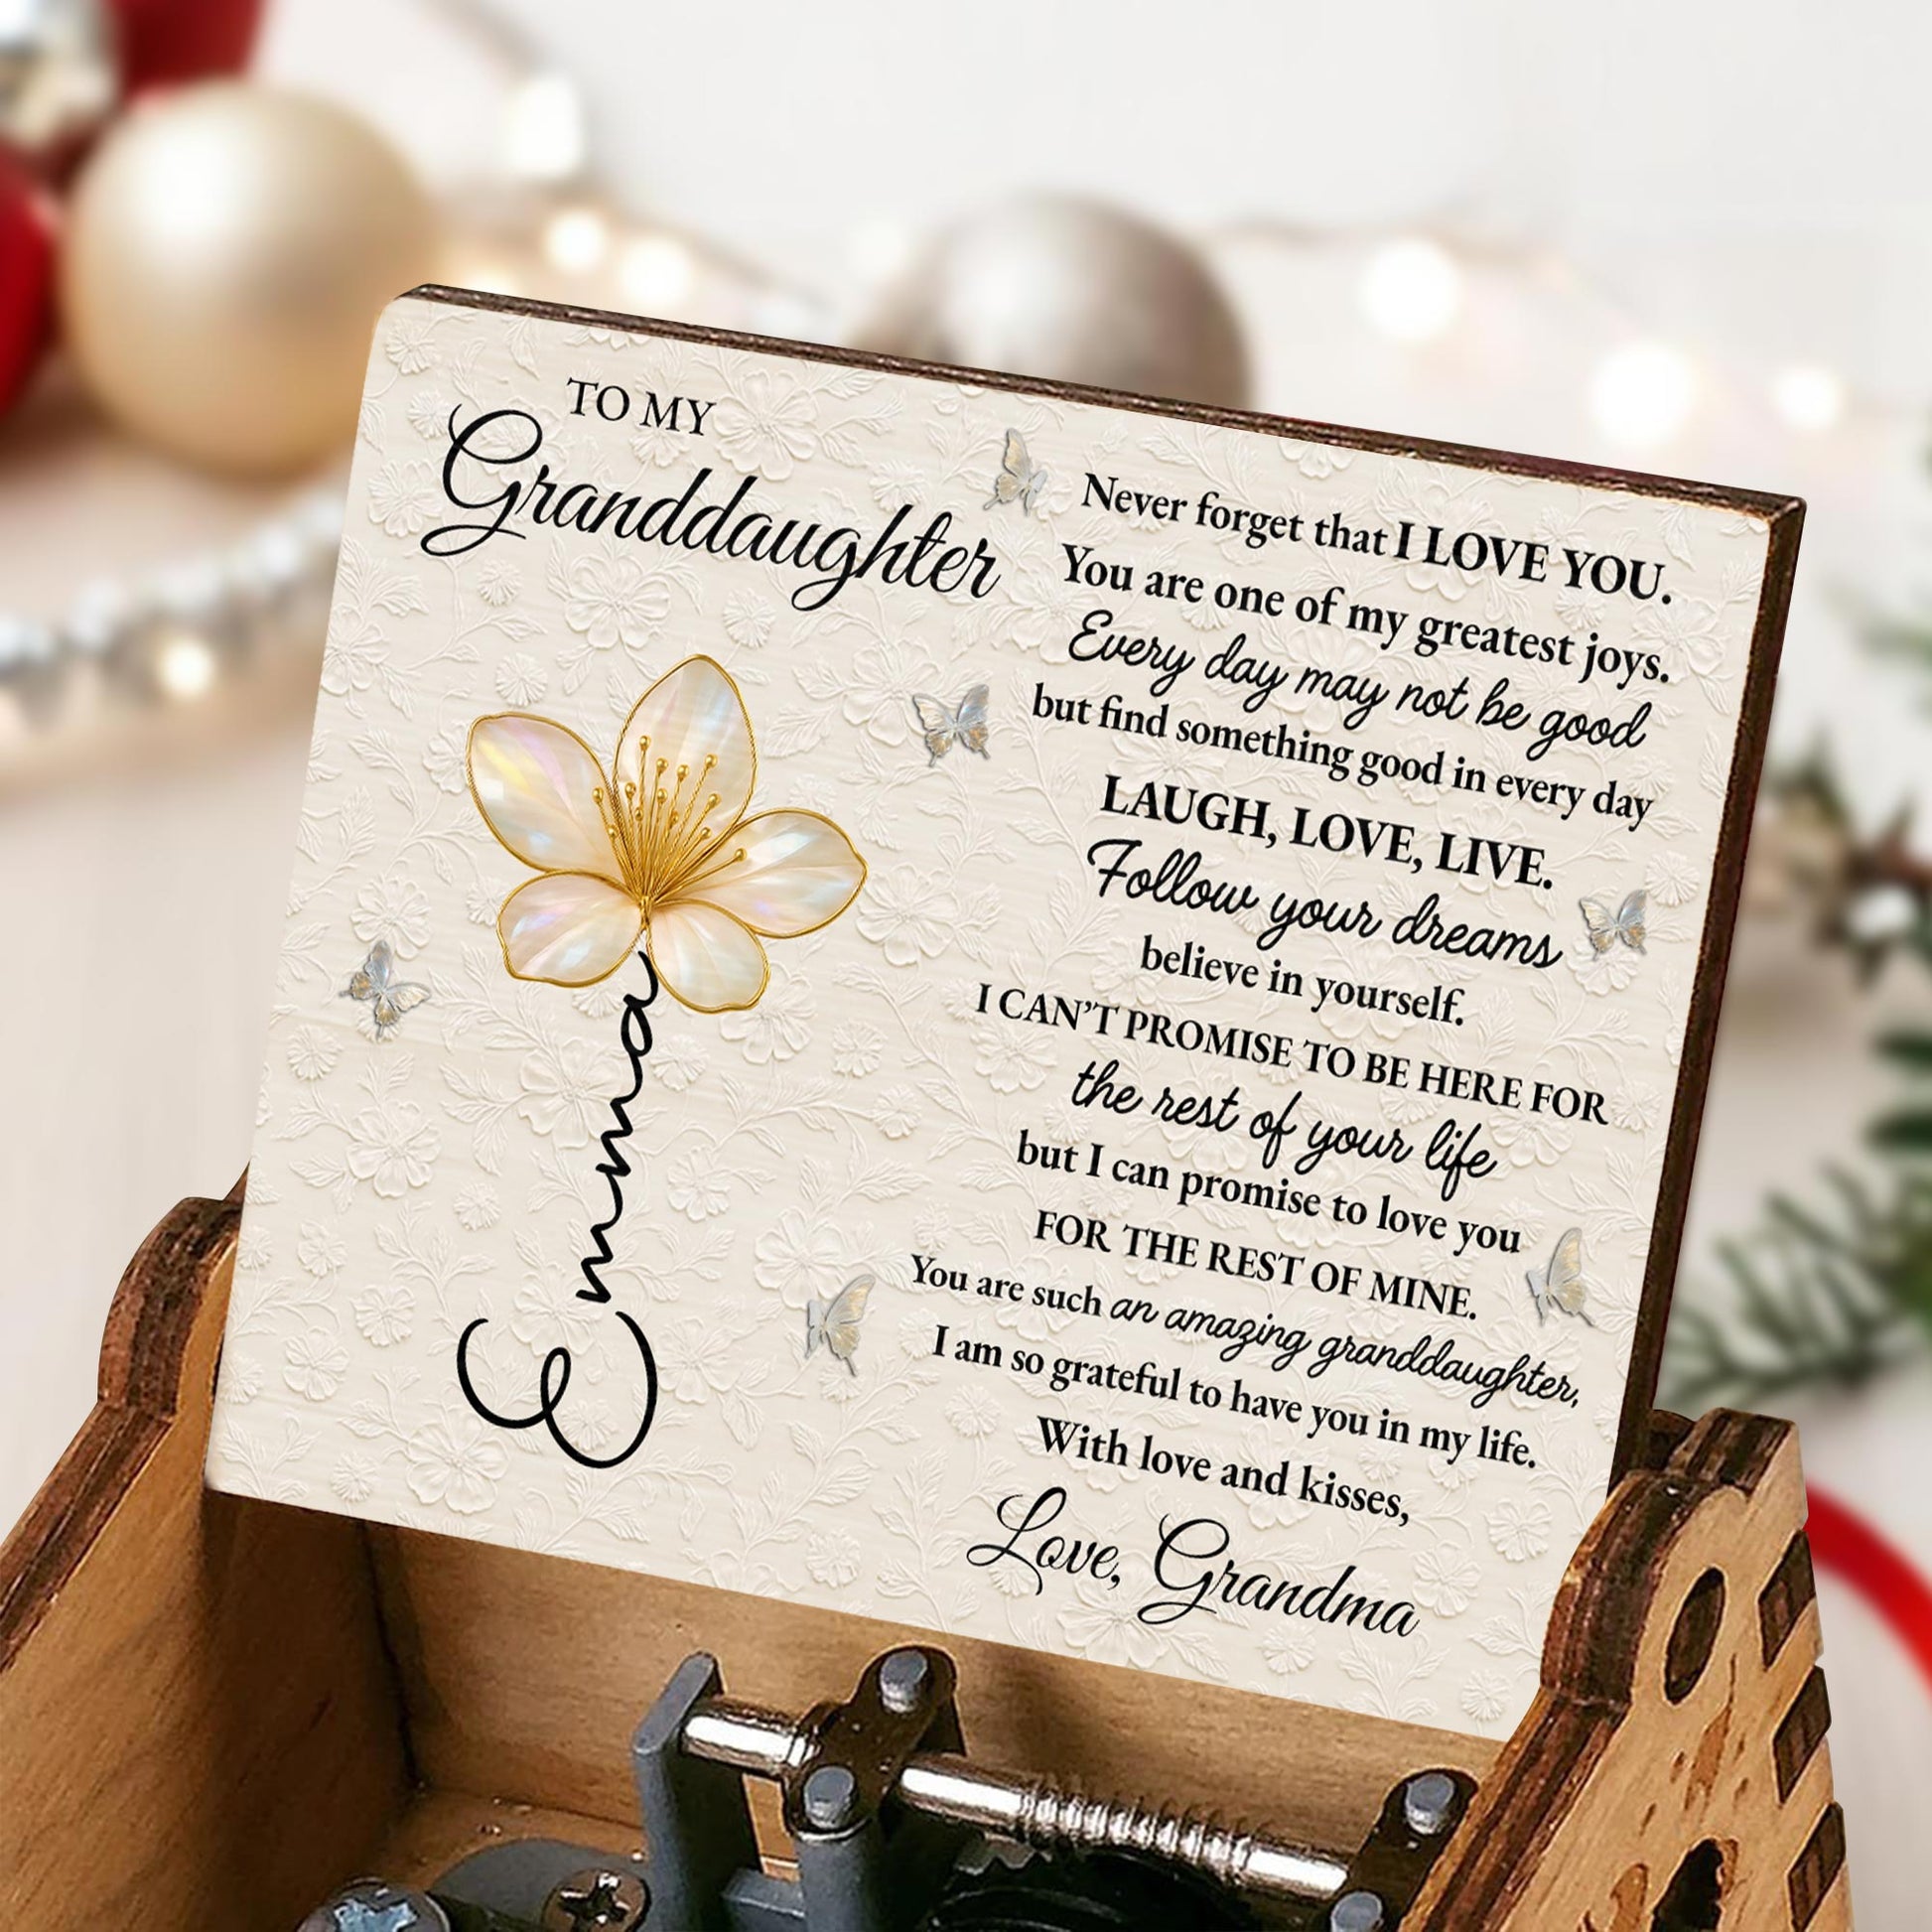 TO MY
Granddaughter
Emma
Never forget that I LOVE YOU.
You are one of my greatest joys.
Every day may not be good
but find something good in every day
LAUGH, LOVE, LIVE.
Follow your dreams
believe in yourself.
I CAN'T PROMISE TO BE HERE FOR
the rest of your life
but I can promise to love you
FOR THE REST OF MINE.
You are such an amazing granddaughter,
I am so grateful to have you in my life.
With love and kisses,
Love, Grandma